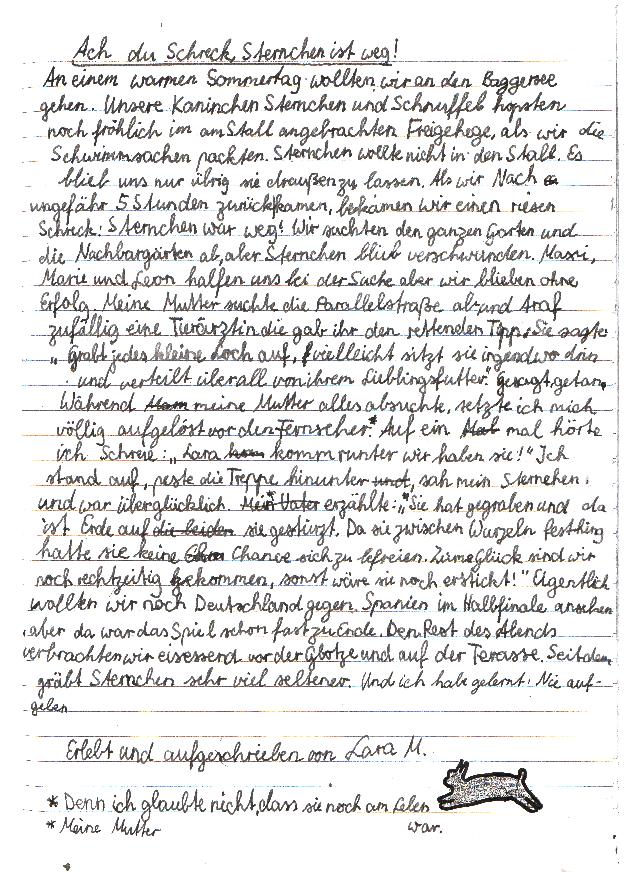 Ach du Schreck, Sternchen ist weg!
An einem warmen Sommertag wollten wir an den Baggersee
gehen. Unsere Kaninchen Sternchen und Schnuffel hopsten
noch fröhlich im am Stall angebrachten Freigehege, als wir die
Schwimmsachen packten. Sternchen wollte nicht in den Stall. Es
blieb uns nur übrig sie draußen zu lassen. Als wir Nach
ungefähr 5 Stunden zurückkamen, bekamen wir einen riesen
Schreck: Sternchen war weg! Wir suchten den ganzen Garten und
die Nachbargärten ab, aber Sternchen blieb verschwunden. Maxi,
Marie und Leon halfen uns bei der Suche aber wir blieben ohne
Erfolg. Meine Mutter suchte die Parallelstraße ab und traf
zufällig eine Tierärztin die gab ihr den rettenden Tipp. Sie sagte
„ Grabt jedes kleine Loch auf, vielleicht sitzt sie irgendwo drin
und verteilt überall von ihrem Lieblingsfutter." gesagt, getan.
Während Mam meine Mutter alles absuchte, setzte ich mich
völlig aufgelöst vor den Fernseher.* Auf ein Mal mal hörte
ich Schreie: „Lara kom komm runter wir haben sie!" Ich
stand auf, peste die Treppe hinunter und, sah mein Sternchen
und war überglücklich. Mein Vater* erzählte: „Sie hat gegraben und da
ist Erde auf die beiden sie gestürzt. Da sie zwischen Wurzeln festhing
hatte sie keine Chance sich zu befreien. Zum Glück sind wir
noch rechtzeitig gekommen, sonst wäre sie noch erstickt!" Eigentlich
wollten wir noch Deutschland gegen Spanien im Halbfinale ansehen
aber da war das Spiel schon fast zu Ende. Den Rest des Abends
verbrachten wir eisessend vor der Glotze und auf der Terasse. Seitdem
gräbt Sternchen sehr viel seltener. Und ich habe gelernt: Nie auf-
geben
Erlebt und aufgeschrieben von Lara M.
* Denn ich glaubte nicht, dass sie noch am Leben
war.
* Meine Mutter